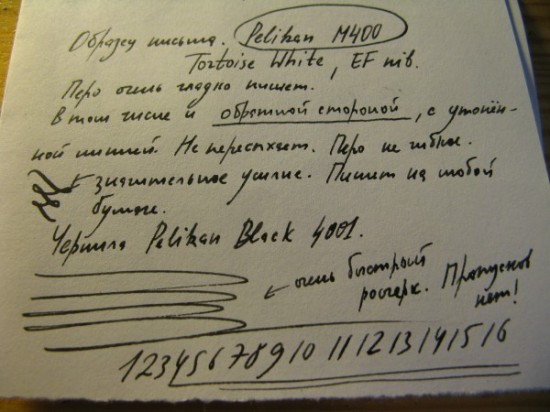 Образец письма. Pelikan M400
Tortoise White, EF nib.
Перо очень гладко пишет.
В том числе и обратной стороной, с утончён-
ной линией. Не пересыхает. Перо не гибкое.
← значительное усилие. Пишет на любой
бумаге.
Чернила Pelikan Black 4001.
← очень быстрый
росчерк. Пропусков
нет!
1 2 3 4 5 6 7 8 9 10 11 12 13 14 15 16